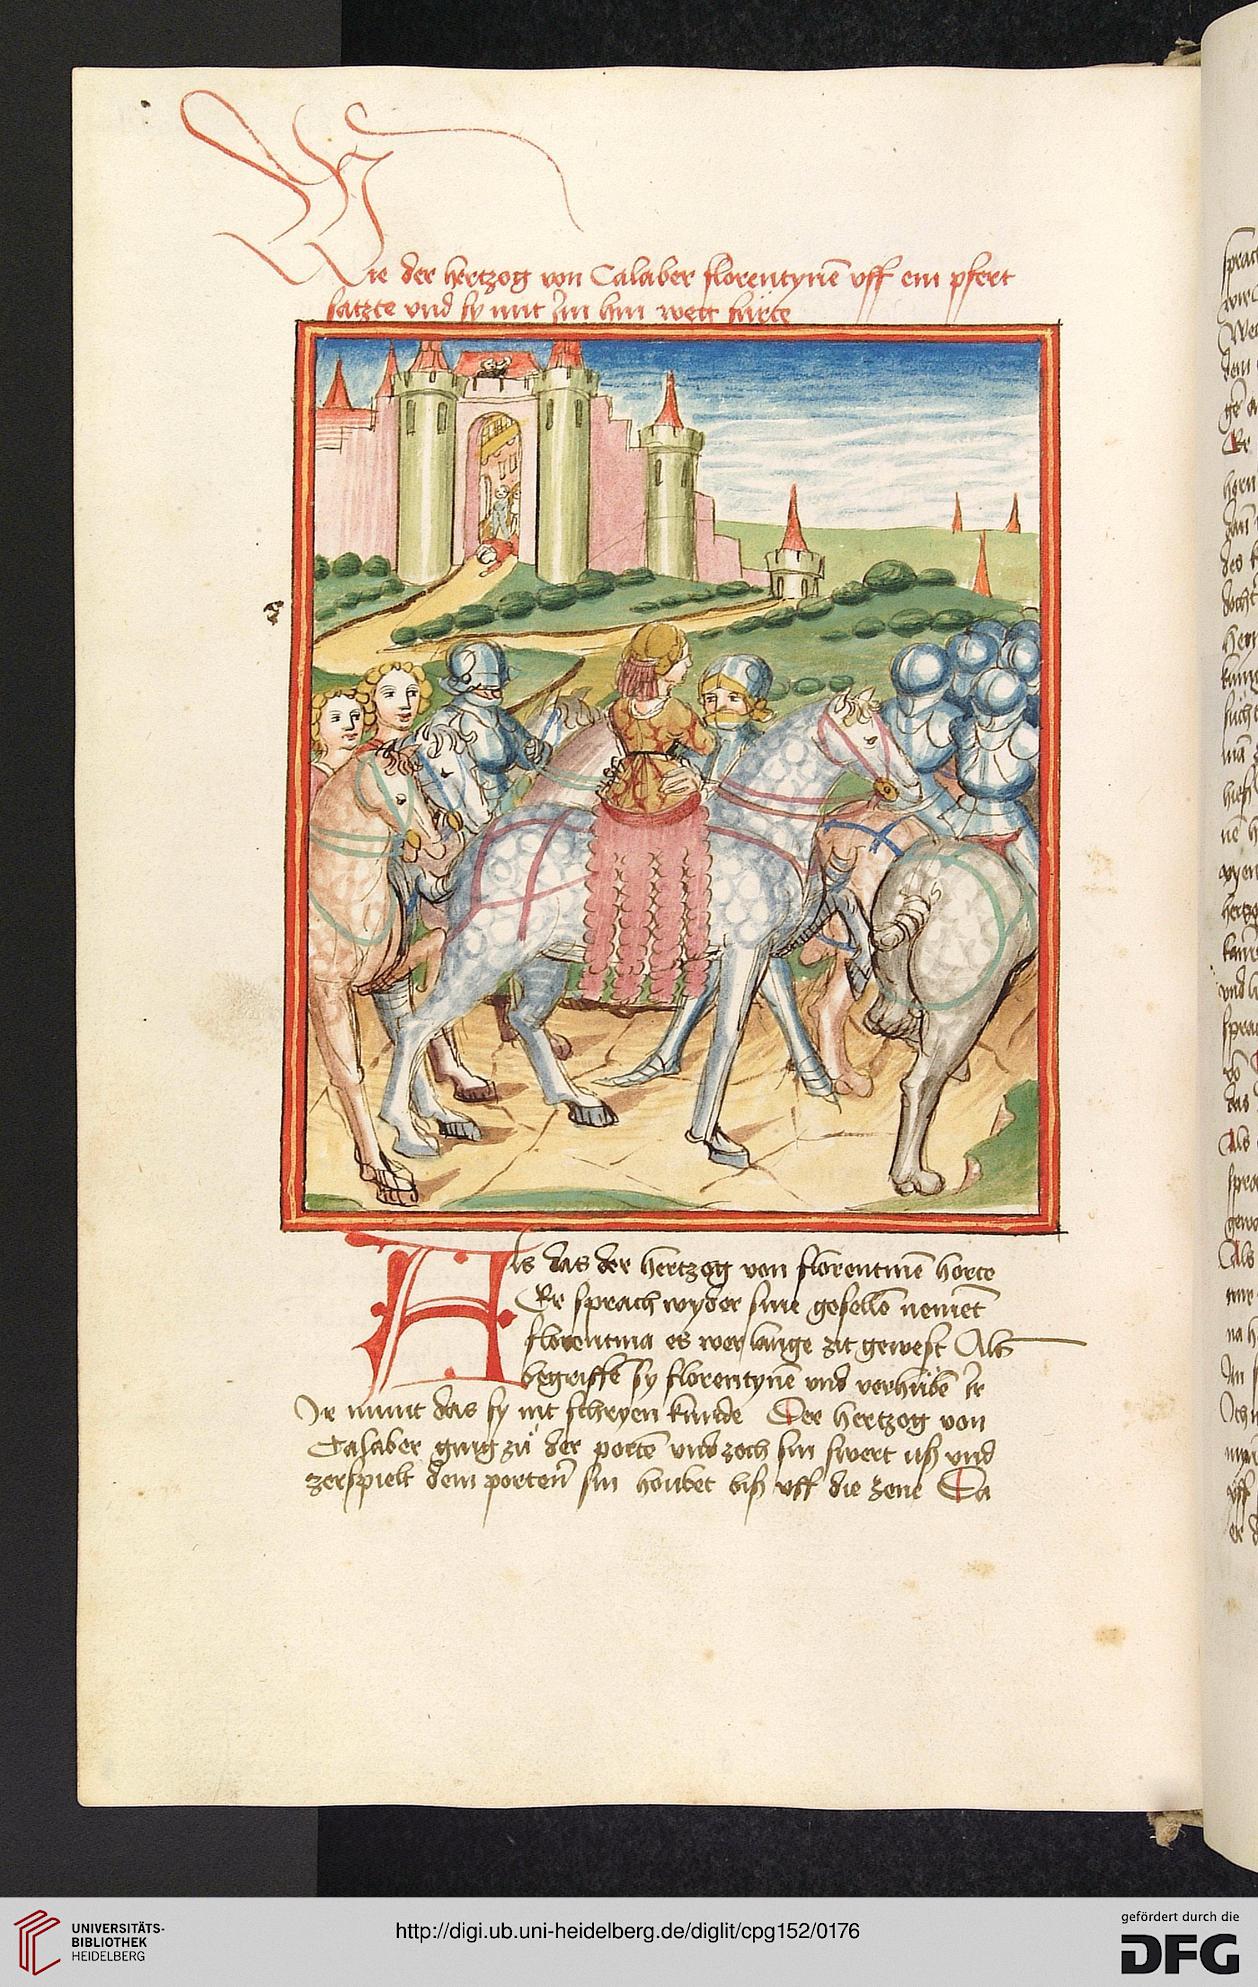 Wie der hertzog von Calaber florentynē vff ein pfert
satzte vnd sy mit Im hin weg fürte
Als das der hertzog von florentinē horte
Er sprach wyder sine geselle nement
florentina es wer lange zit gewest Als
begriffē sy florentynē vnd verhübē Ir
Ir munt das sy nit schryen kunde Der hertzog von
Calaber ging zü der portē vnd zoch sin swert uß vnd
zerspielt dem portēn sin houbet biß vff die zene Da
UNIVERSITÄTS-
BIBLIOTHEK
HEIDELBERG
http://digi.ub.uni-heidelberg.de/diglit/cpg152/0176
gefördert durch die
DFG